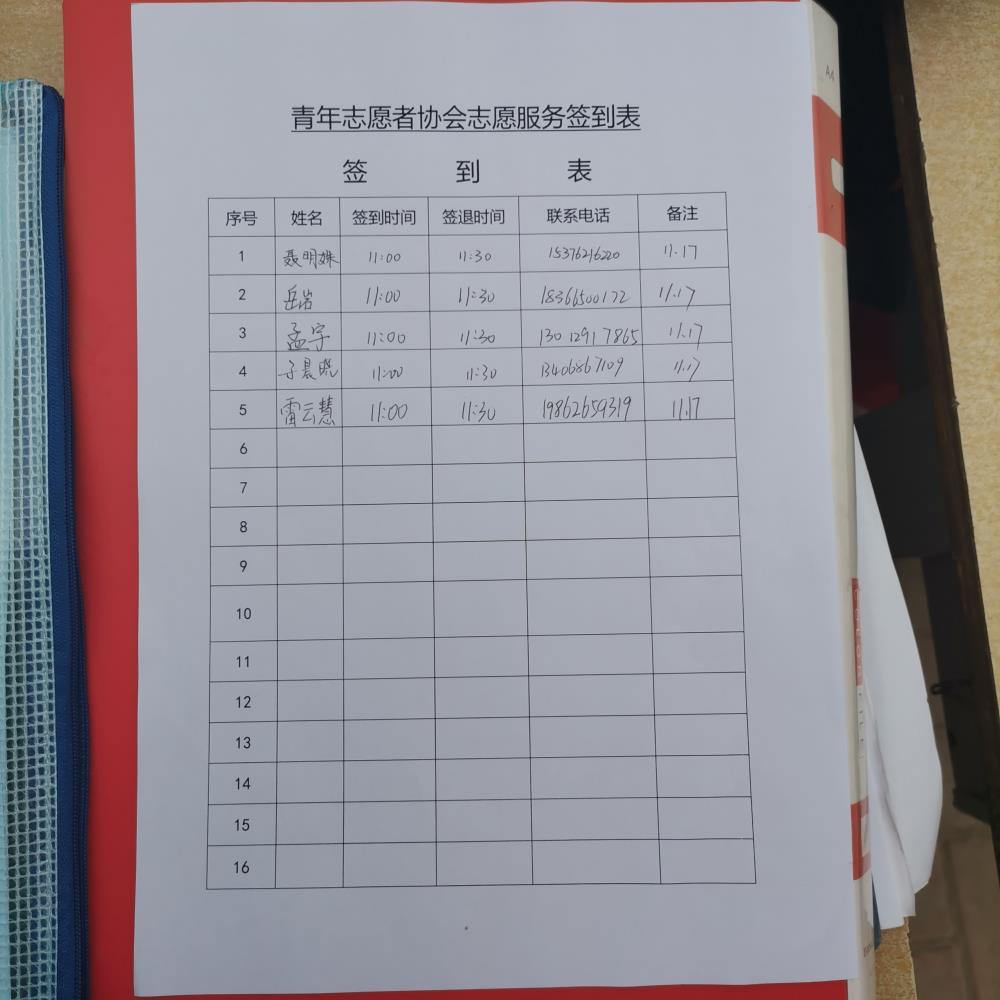 A4
青年志愿者协会志愿服务签到表
签 到 表
序号 姓名 签到时间 签退时间 联系电话 备注
1 聂明姝 11:00 11:30 15376216220 11.17
2 岳岩 11:00 11:30 18366500172 11.17
3 孟宇 11:00 11:30 13012917865 11.17
4 于晨晓 11:00 11:30 13406867109 11.17
5 雷云慧 11:00 11:30 19862659319 11.17
6
7
8
9
10
11
12
13
14
15
16